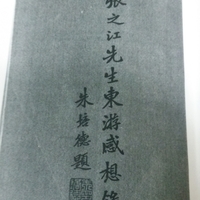 張之江先生東游感想錄
朱培德題